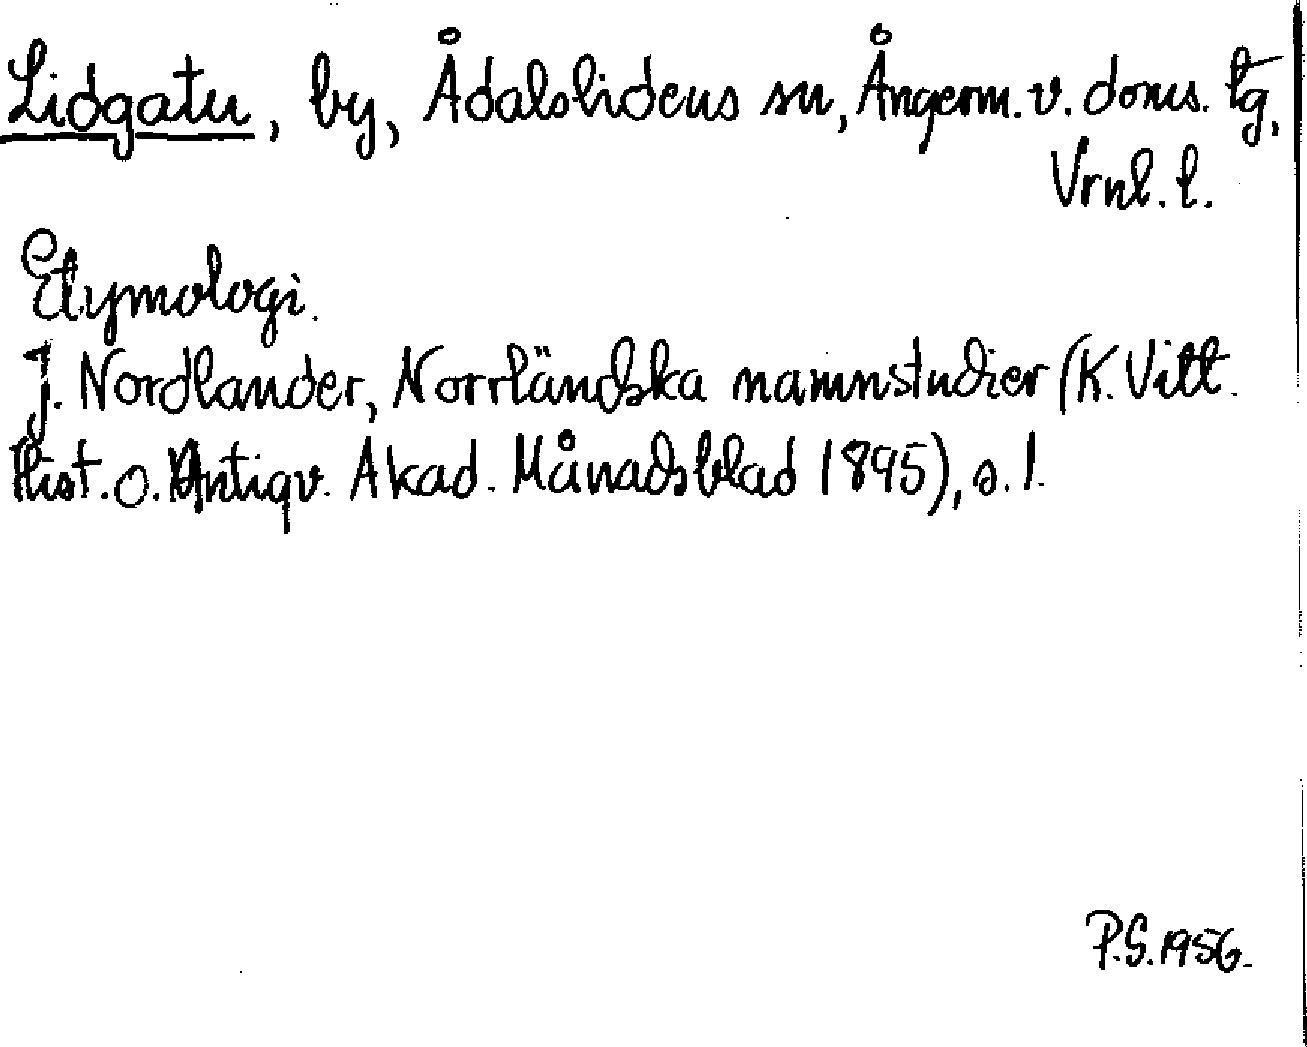 Lidgatu, by, Ådalslidens sn, Ångerm. v. doms. tg,
Vrnl. l.
Etymologi.
J. Nordlander, Norrländska namnstudier (K. Vitt.
Hist. o. Antiqv. Akad. Månadsblad 1895), s. 1.
P.S. 1956.